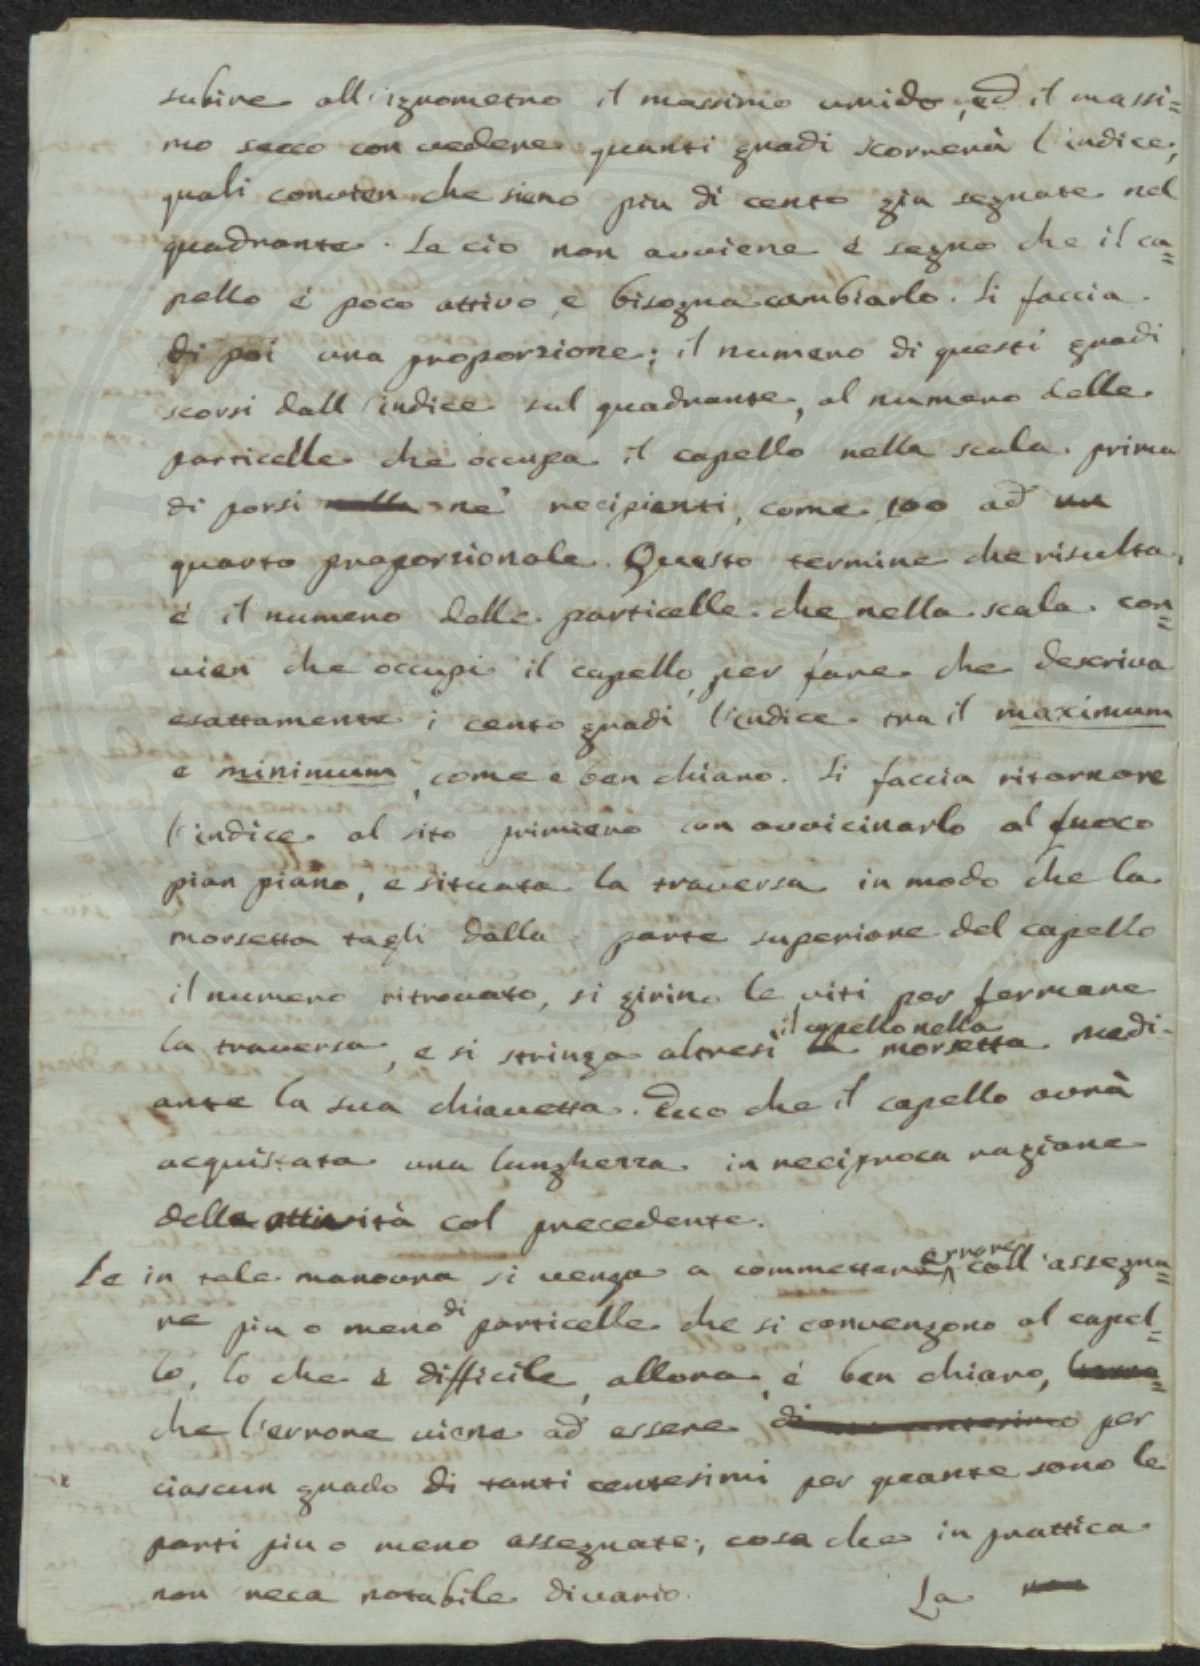 subire all'igrometro il massimo umido, ed il massi=
mo secco con vedere quanti gradi scorrerà l'indice,
quali convien che sieno piu di cento gia segnate nel
quadrante. Se cio non avviene è segno che il ca=
pello è poco attivo, e bisogna cambiarlo. Si faccia
di poi una proporzione; il numero di questi gradi
scorsi dall'indice sul quadrante, al numero delle
particelle che occupa il capello nella scala prima
di porsi ne' recipienti, come 100 ad un
quarto proporzionale. Questo termine che risulta,
è il numero delle particelle che nella scala con=
vien che occupi il capello, per fare che descriva
esattamente i cento gradi l'indice tra il maximum
e minimum, come è ben chiaro. Si faccia ritornare
l'indice al sito primiero con avvicinarlo al fuoco
pian piano, e situata la traversa in modo che la
morsetta tagli dalla parte superiore del capello
il numero ritrovato, si girino le viti per fermare
la traversa, e si stringa altresi il capello nella morsetta medi-
ante la sua chiavetta. Ecco che il capello avrà
acquistata una lunghezza in reciproca ragione
delle attività col precedente.
Se in tale manovra si venga a commettere errore coll'assegna=
re piu o meno di particelle che si convengono al capel=
lo, lo che è difficile, allora, è ben chiaro,
che l'errore viene ad essere per
ciascun grado di tanti centesimi per quante sono le
parti piu o meno assegnate; cosa che in prattica
non reca notabile divario.
La